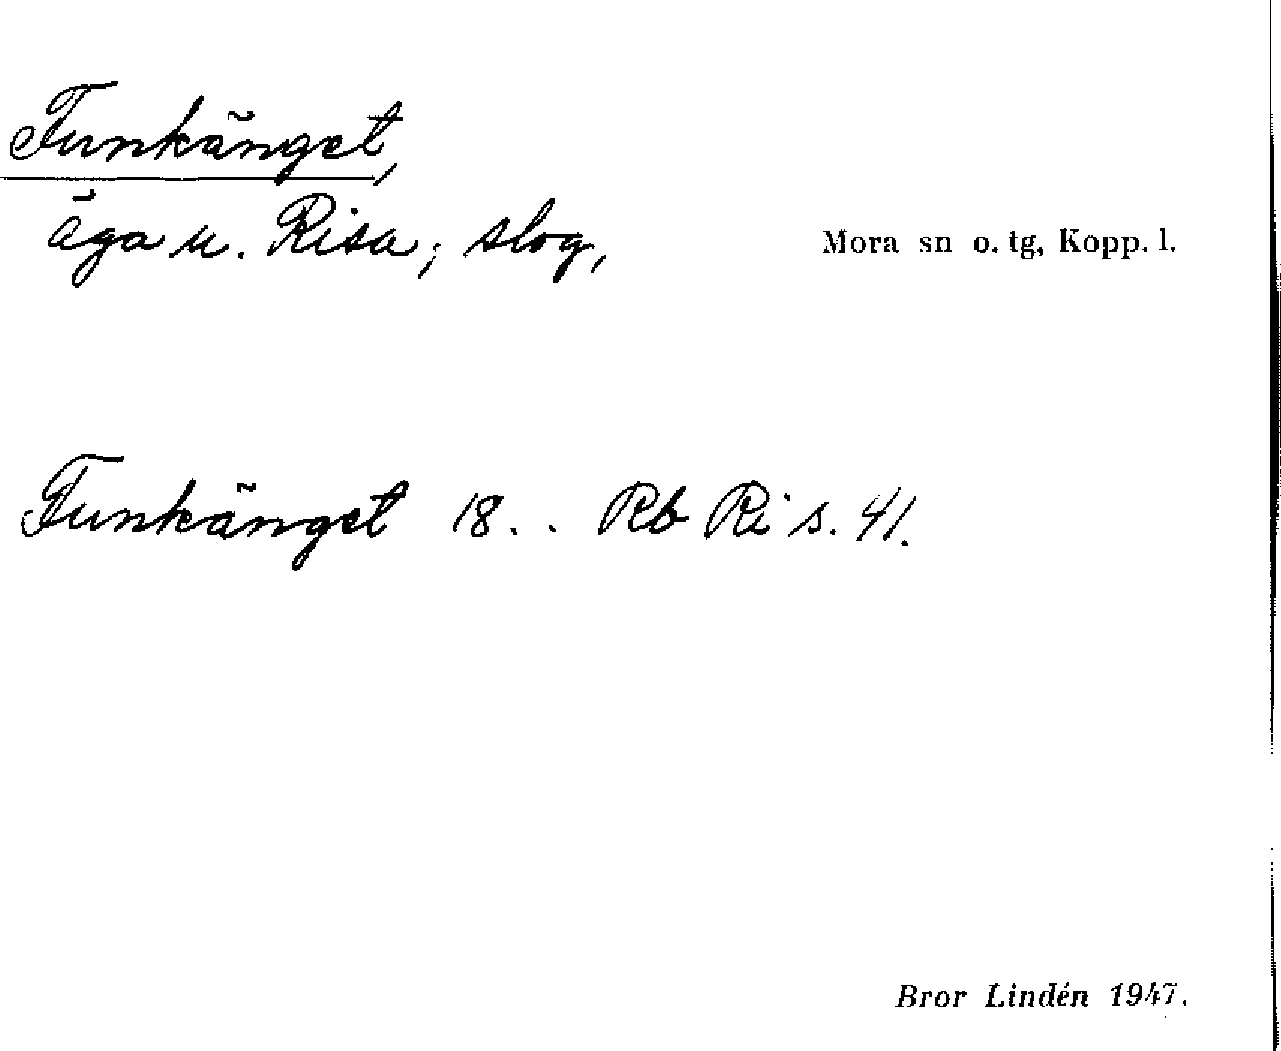 Funkänget,
äga u. Risa; slog,
Mora sn o. tg, Kopp. l.
Funkänget 18. . Rb Ri s. 41.
Bror Lindén 1947.